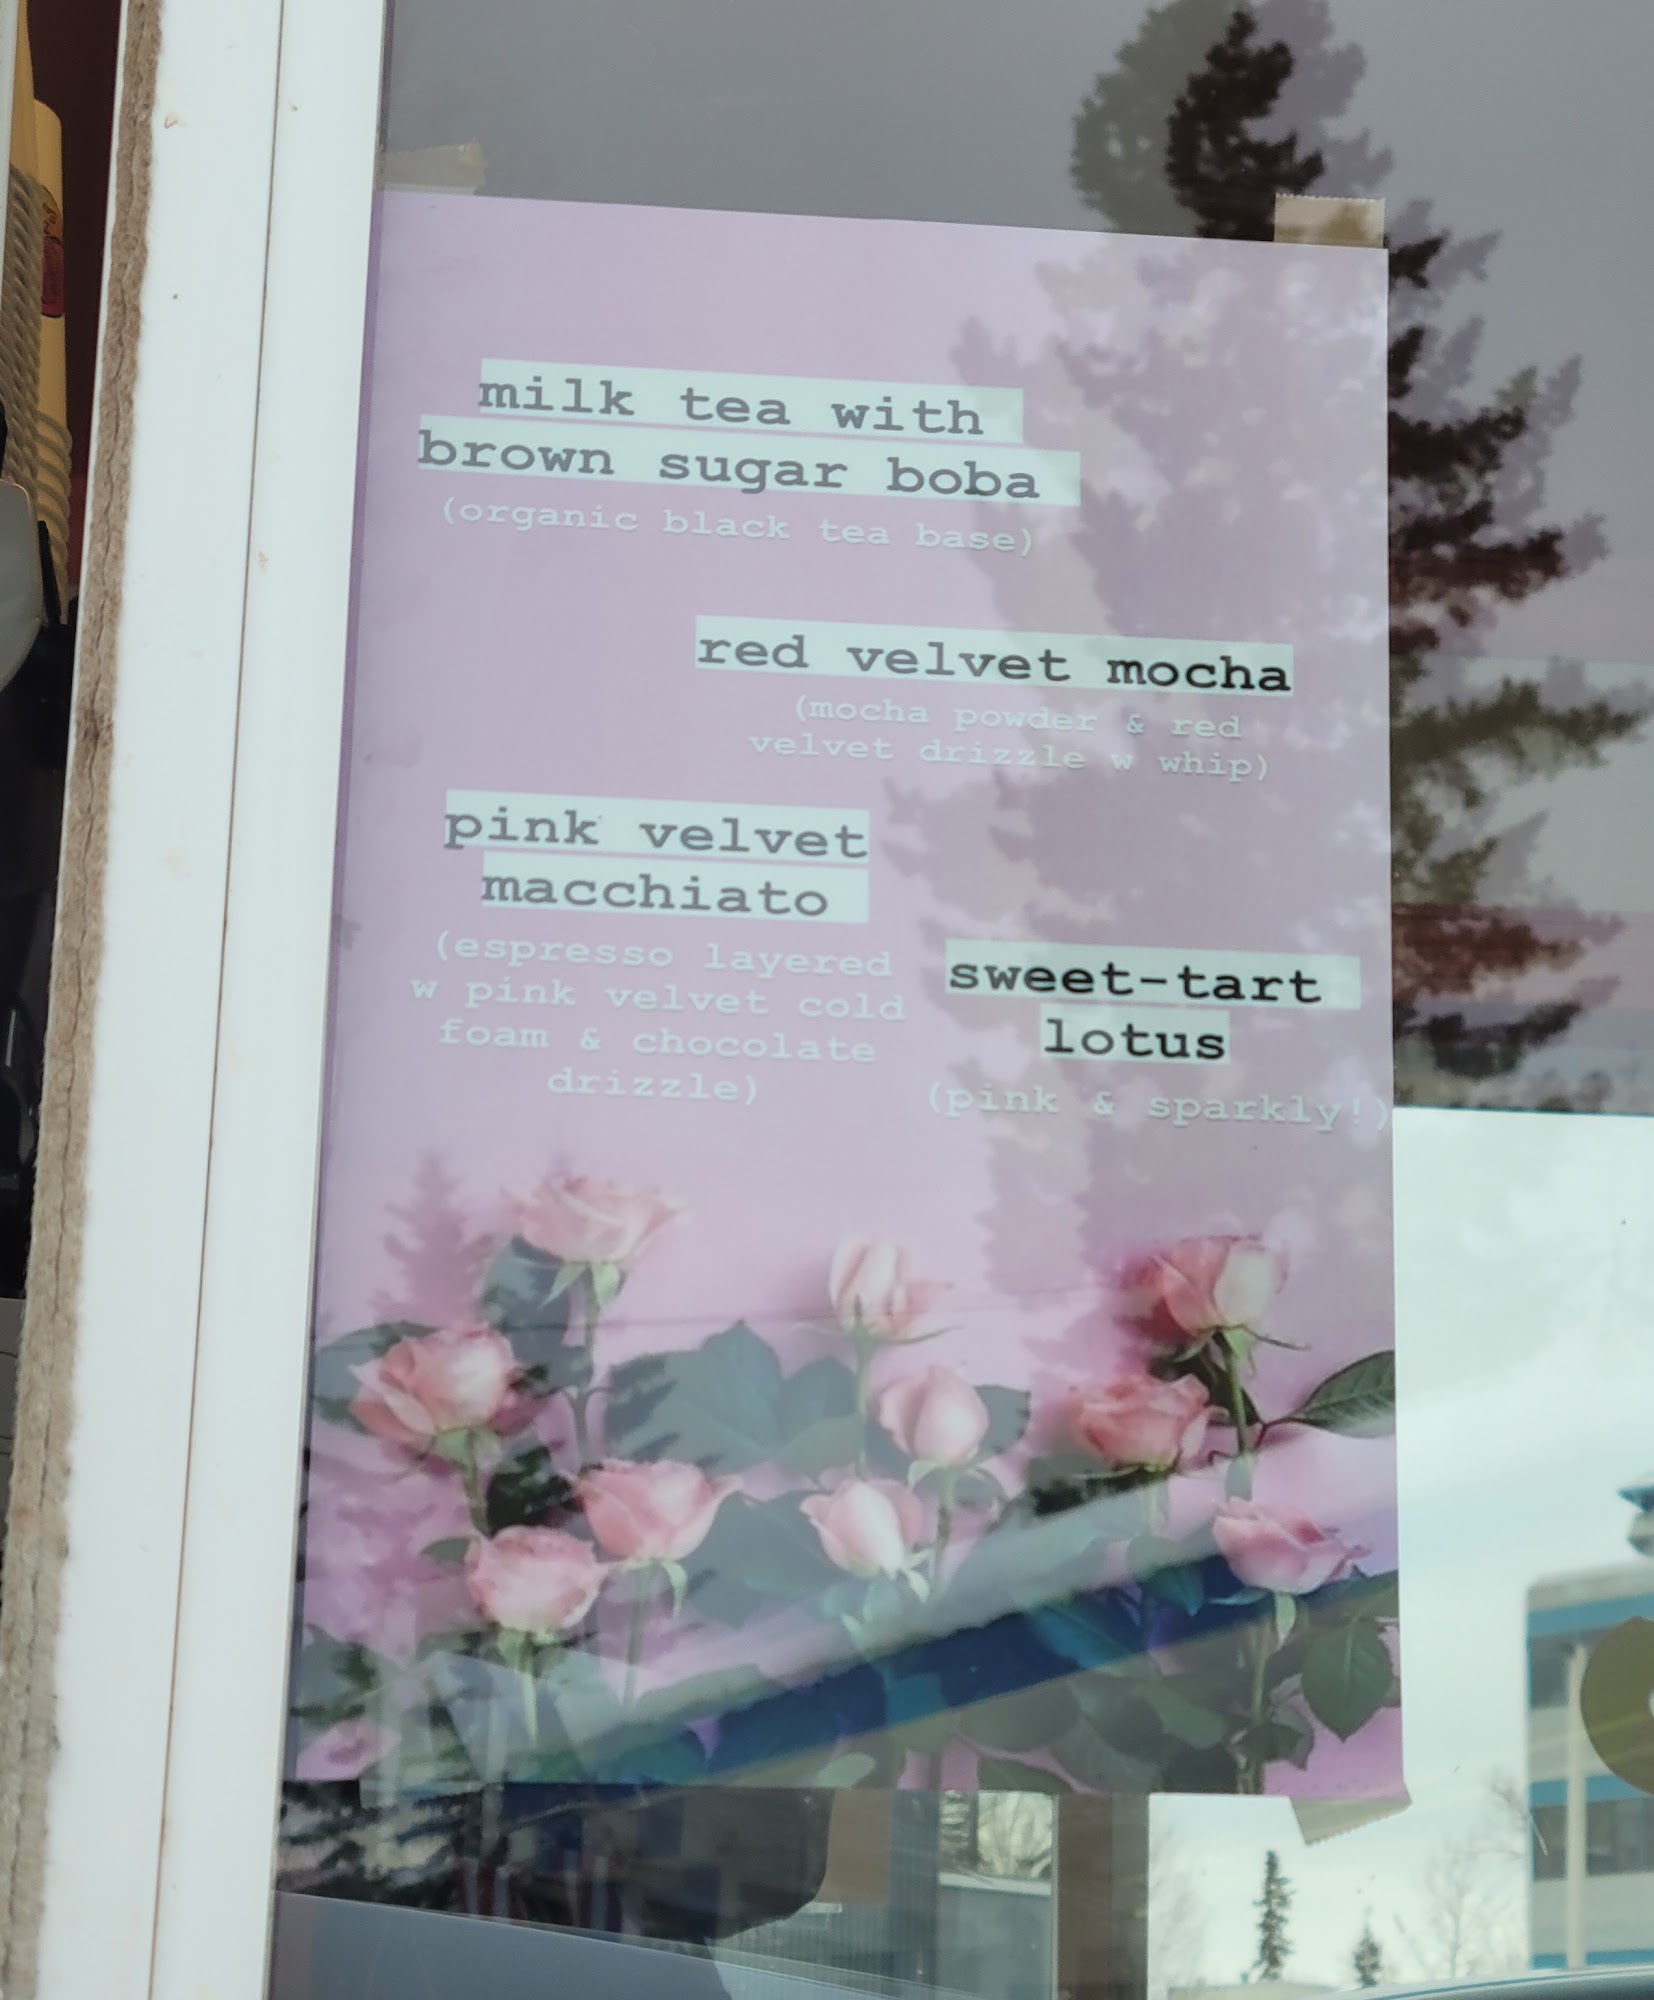 milk tea with
brown sugar boba
(organic black tea base)
red velvet mocha
(mocha powder & red
velvet drizzle w whip)
pink velvet
macchiato
(espresso layered
w pink velvet cold
foam & chocolate
drizzle)
sweet-tart
lotus
(pink & sparkly!)